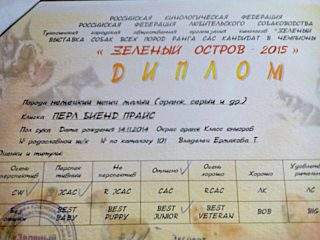 РОССИЙСКАЯ КИНОЛОГИЧЕСКАЯ ФЕДЕРАЦИЯ
РОССИЙСКАЯ ФЕДЕРАЦИЯ ЛЮБИТЕЛЬСКОГО СОБАКОВОДСТВА
городская общественная организация "ЗЕЛЕНЫЙ
ВЫСТАВКА СОБАК ВСЕХ ПОРОД РАНГА САС КАНДИДАТ В ЧЕМПИОНЫ
« ЗЕЛЕНЫЙ ОСТРОВ - 2015 »
ДИПЛОМ
Порода немецкий шпиц (оранж, серый и др.)
Кличка ПЕРЛ БИЕНД ПРАЙС
Пол сука Дата рождения 14.11.2014 Окрас оранж Класс
№ родословной н/к № по каталогу 101 Владелец Ермакова Т.
Оценки и титулы
Очень перспектив Перспек тивный Не перспектив Отлично Очень хорошо Хорошо
CW JCAC R JCAC CAC RCAC ЛК ЛС
BEST BABY BEST PUPPY BEST JUNIOR BEST VETERAN BOB BIG